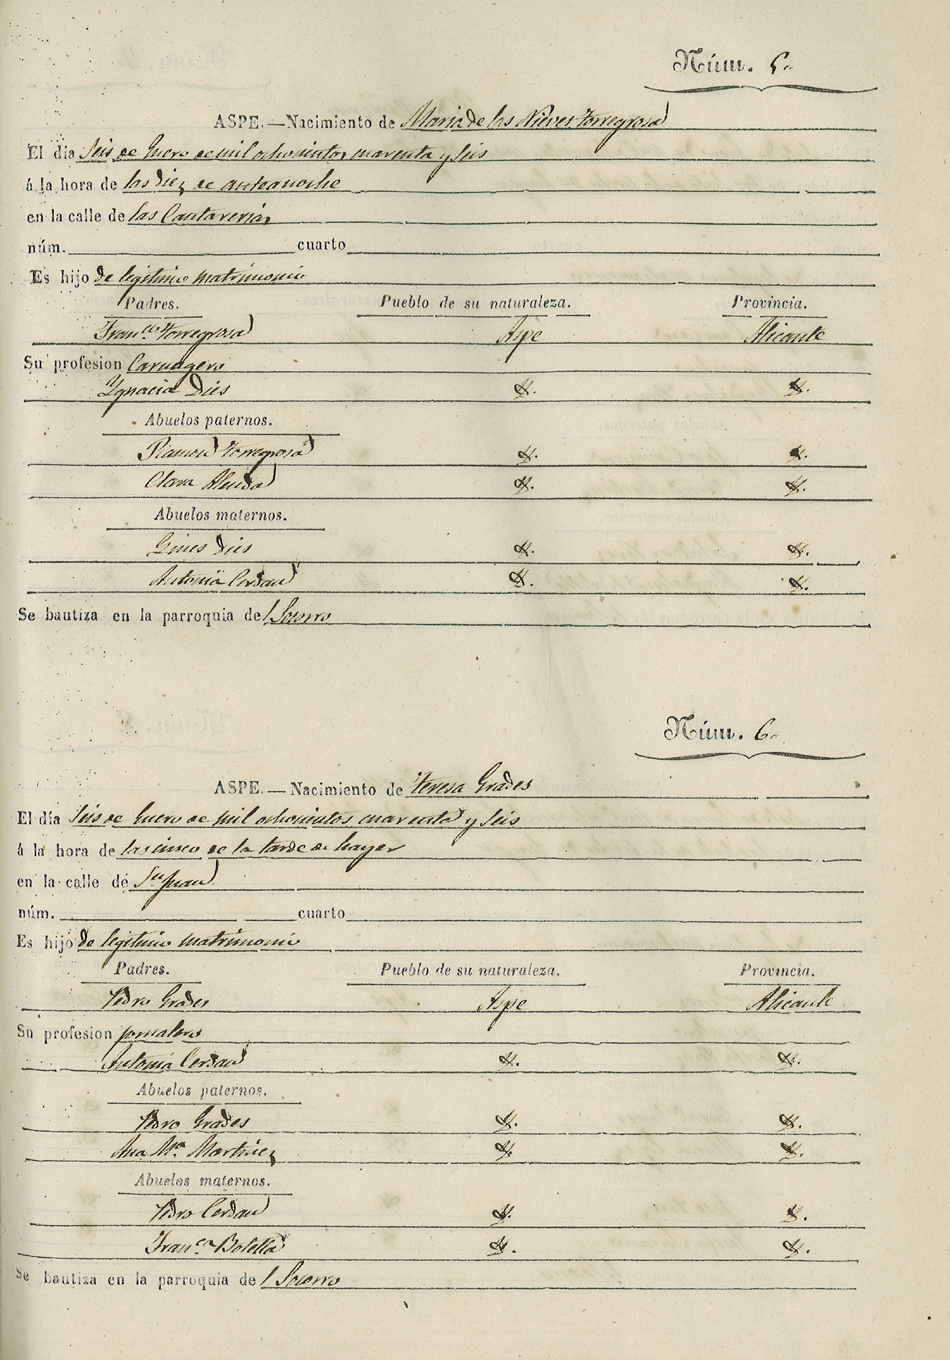 Núm. 5.
ASPE.—Nacimiento de Maria de las Nieves Torregrosa
El día Seis de Enero de mil ochocientos cuarenta y seis
á la hora de las diez de anteanoche
en la calle de las Cantarerias
núm. cuarto
Es hijo de legitimo matrimonio
Padres. Pueblo de su naturaleza. Provincia.
Fran.co Torregrosa Aspe Alicante
Su profesion
Ygnacia Dies
Abuelos paternos.
Ramon Torregrosa
Clara
Abuelos maternos.
Gines Dies
Antonia Cerdan
Se bautiza en la parroquia del Socorro
Núm. 6.
ASPE.—Nacimiento de Teresa Grades
El día Seis de Enero de mil ochocientos cuarenta y seis
á la hora de las cinco de la tarde de hayer
en la calle de Sn Juan
núm. cuarto
Es hijo de legitimo matrimonio
Padres. Pueblo de su naturaleza. Provincia.
Pedro Grades Aspe Alicante
Su profesion jornalero
Antonia Cerdan
Abuelos paternos.
Pedro Grades
Ana Ma. Martinez
Abuelos maternos.
Pedro Cerdan
Fran.ca Botella
Se bautiza en la parroquia del Socorro